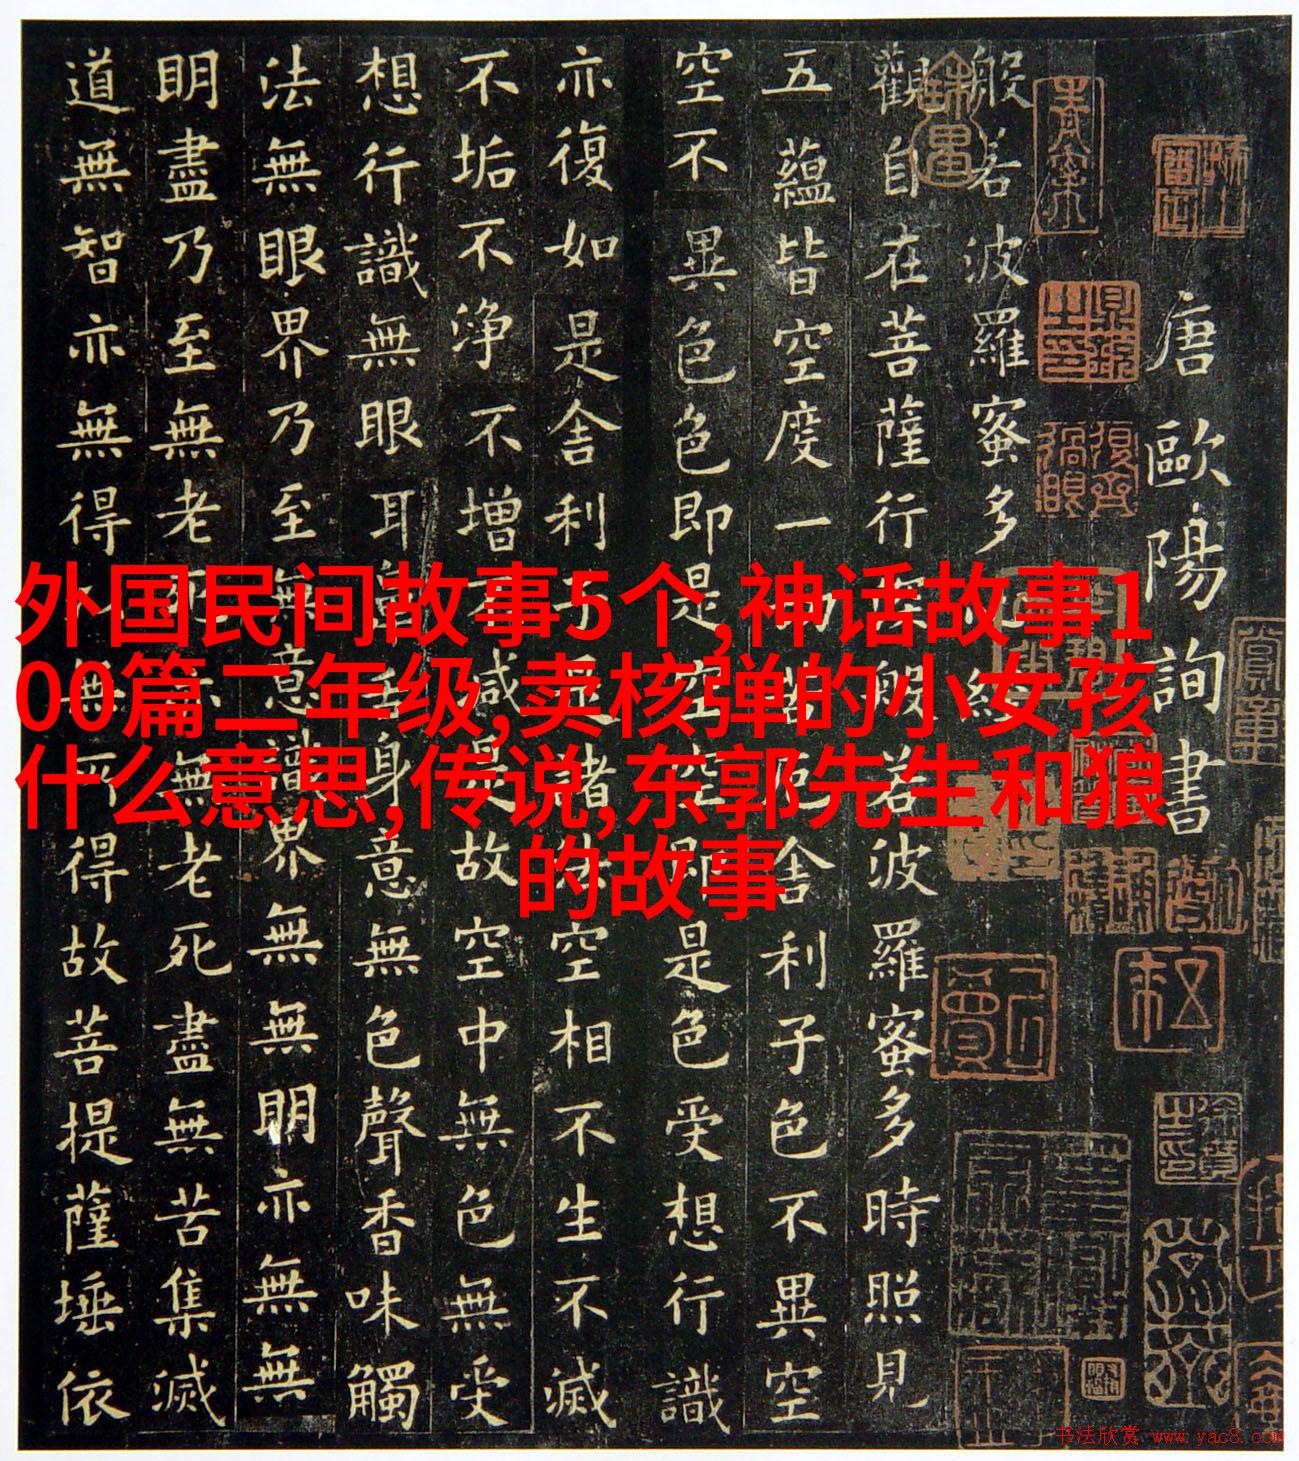 唐歐陽詢書
般若波羅蜜多心經
觀自在菩薩行深般若波羅蜜多時照見
五蘊皆空度一切苦厄舍利子色不異空
空不異色色即是空空即是色受想行識
亦復如是舍利子是諸法空相不生不滅
不垢不淨不增不減是故空中無色無受
想行識無眼耳鼻舌身意無色聲香味觸
法無眼界乃至無意識界無無明亦無無
明盡乃至無老死亦無老死盡無苦集滅
道無智亦無得以無所得故菩提薩埵依
外国民间故事5个,神话故事1
00篇二年级,卖核弹的小女孩
什么意思,传说,东郭先生和狼
的故事
书法欣赏 www.yac8.com